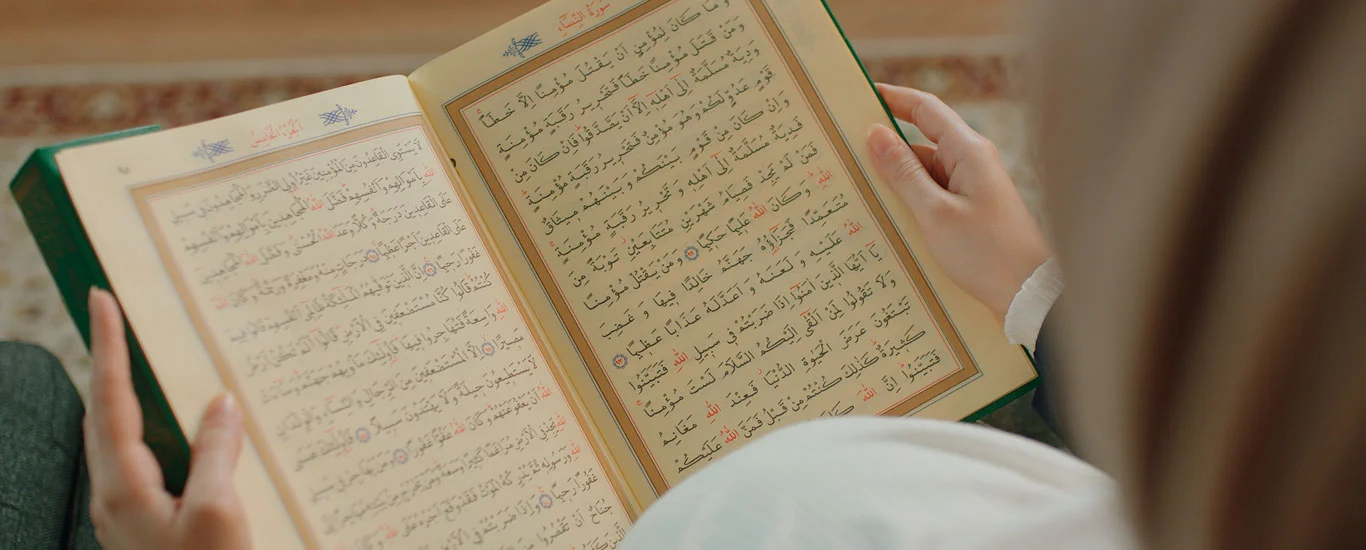 سورة النساء
وَمَا كَانَ لِمُؤْمِنٍ اَنْ يَقْتُلَ مُؤْمِنًا اِلَّا خَطَـًٔا
وَمَنْ قَتَلَ مُؤْمِنًا خَطَـًٔا فَتَحْرِيرُ رَقَبَةٍ مُؤْمِنَةٍ
وَدِيَةٌ مُسَلَّمَةٌ اِلٰٓى اَهْلِهٖ اِلَّٓا اَنْ يَصَّدَّقُوا فَاِنْ كَانَ مِنْ
قَوْمٍ عَدُوٍّ لَكُمْ وَهُوَ مُؤْمِنٌ فَتَحْرِيرُ رَقَبَةٍ مُؤْمِنَةٍ
وَاِنْ كَانَ مِنْ قَوْمٍ بَيْنَكُمْ وَبَيْنَهُمْ مِيثَاقٌ
فَدِيَةٌ مُسَلَّمَةٌ اِلٰٓى اَهْلِهٖ وَتَحْرِيرُ رَقَبَةٍ مُؤْمِنَةٍ
فَمَنْ لَمْ يَجِدْ فَصِيَامُ شَهْرَيْنِ مُتَتَابِعَيْنِ تَوْبَةً مِنَ
اللّٰهِ وَكَانَ اللّٰهُ عَلِيمًا حَكِيمًا ٩٢ وَمَنْ يَقْتُلْ مُؤْمِنًا
مُتَعَمِّدًا فَجَزَٓاؤُهُ جَهَنَّمُ خَالِدًا فِيهَا وَغَضِبَ
اللّٰهُ عَلَيْهِ وَلَعَنَهُ وَاَعَدَّ لَهُ عَذَابًا عَظِيمًا ٩٣
يَٓا اَيُّهَا الَّذِينَ اٰمَنُٓوا اِذَا ضَرَبْتُمْ فِي سَبِيلِ اللّٰهِ فَتَبَيَّنُوا
وَلَا تَقُولُوا لِمَنْ اَلْقٰٓى اِلَيْكُمُ السَّلَامَ لَسْتَ مُؤْمِنًا
تَبْتَغُونَ عَرَضَ الْحَيٰوةِ الدُّنْيَا فَعِنْدَ اللّٰهِ مَغَانِمُ
كَثِيرَةٌ كَذٰلِكَ كُنْتُمْ مِنْ قَبْلُ فَمَنَّ اللّٰهُ عَلَيْكُمْ
فَتَبَيَّنُوا اِنَّ اللّٰهَ
الجزء الخامس
لَا يَسْتَوِي الْقَاعِدُونَ مِنَ الْمُؤْمِنِينَ غَيْرُ اُولِي الضَّرَرِ وَالْمُجَاهِدُونَ فِي سَبِيلِ
اللّٰهِ بِاَمْوَالِهِمْ وَاَنْفُسِهِمْ فَضَّلَ اللّٰهُ الْمُجَاهِدِينَ بِاَمْوَالِهِمْ وَاَنْفُسِهِمْ
عَلَى الْقَاعِدِينَ دَرَجَةً وَكُلًّا وَعَدَ اللّٰهُ الْحُسْنٰى وَفَضَّلَ اللّٰهُ الْمُجَاهِدِينَ
عَلَى الْقَاعِدِينَ اَجْرًا عَظِيمًا دَرَجَاتٍ مِنْهُ وَمَغْفِرَةً وَرَحْمَةً وَكَانَ اللّٰهُ
غَفُورًا رَحِيمًا اِنَّ الَّذِينَ تَوَفّٰيهُمُ الْمَلٰٓئِكَةُ ظَالِمِٓي اَنْفُسِهِمْ قَالُوا فِيمَ
كُنْتُمْ قَالُوا كُنَّا مُسْتَضْعَفِينَ فِي الْاَرْضِ قَالُٓوا اَلَمْ تَكُنْ اَرْضُ
اللّٰهِ وَاسِعَةً فَتُهَاجِرُوا فِيهَا فَاُولٰٓئِكَ مَأْوٰيهُمْ جَهَنَّمُ وَسَٓاءَتْ
مَصِيرًا اِلَّا الْمُسْتَضْعَفِينَ مِنَ الرِّجَالِ وَالنِّسَٓاءِ وَالْوِلْدَانِ
لَا يَسْتَطِيعُونَ حِيلَةً وَلَا يَهْتَدُونَ سَبِيلًا فَاُولٰٓئِكَ عَسَى
اللّٰهُ اَنْ يَعْفُوَ عَنْهُمْ وَكَانَ اللّٰهُ عَفُوًّا غَفُورًا وَمَنْ يُهَاجِرْ فِي سَبِيلِ
اللّٰهِ يَجِدْ فِي الْاَرْضِ مُرَاغَمًا كَثِيرًا وَسَعَةً وَمَنْ يَخْرُجْ مِنْ بَيْتِهٖ مُهَاجِرًا اِلَى
اللّٰهِ وَرَسُولِهٖ ثُمَّ يُدْرِكْهُ الْمَوْتُ فَقَدْ وَقَعَ اَجْرُهُ عَلَى اللّٰهِ وَكَانَ
غَفُورًا رَحِيمًا وَاِذَا ضَرَبْتُمْ فِي الْاَرْضِ
جُنَاحٌ اَنْ تَقْصُرُوا